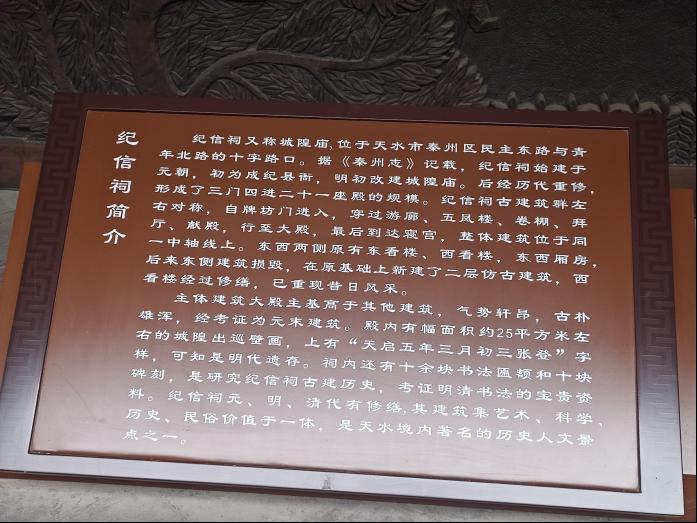 纪信祠简介
纪信祠又称城隍庙,位于天水市秦州区民主东路与青
年北路的十字路口。据《秦州志》记载,纪信祠始建于
元朝,初为成纪县衙,明初改建城隍庙。后经历代重修,
形成了三门四进二十一座殿的规模。纪信祠古建筑群左
右对称,自牌坊门进入,穿过游廊、五凤楼、卷棚、拜
厅、献殿,行至大殿,最后到达寝宫,整体建筑位于同
一中轴线上。东西两侧原有东看楼、西看楼,东西厢房,
后来东侧建筑损毁,在原基础上新建了二层仿古建筑,西
看楼经过修缮,已重现昔日风采。
主体建筑大殿主基高于其他建筑,气势轩昂,古朴
雄浑,经考证为元末建筑。殿内有幅面积约25平方米左
右的城隍出巡壁画,上有“天启五年三月初三张登”字
样,可知是明代遗存。祠内还有十余块书法匾额和十块
碑刻,是研究纪信祠古建历史,考证明清书法的宝贵资
料。纪信祠元、明、清代有修缮,其建筑集艺术、科学、
历史、民俗价值于一体,是天水境内著名的历史人文景
点之一。